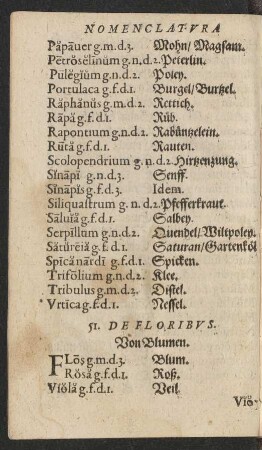 NOMENCLATVRA
Păpāuer g.m.d.3. Mohn/Magsam.
Pĕtrŏsĕlīnŭm g.n.d.2. Peterlin.
Pulĕgĭum g.n.d.2. Poley.
Portulaca g.f.d.1. Burgel/Burtzel.
Răphănŭs g.m.d.2. Rettich.
Rāpă g.f.d.1. Rüb.
Rapontium g.n.d.2. Rabüntzelein.
Rūtă g.f.d.1. Rauten.
Scolopendrium g.n.d.2. Hirtzenzung.
Sĭnāpĭ g.n.d.3. Senff.
Sĭnāpĭs g.f.d.3. Idem.
Siliquastrum g.n.d.2. Pfefferkraut.
Sāluĭă g.f.d.1. Salbey.
Serpīllum g.n.d.2. Quendel/Wiltpoley.
Sătŭrēiă g.f.d.1. Saturan/Gartenköl
Spīcă nārdĭ g.f.d.1. Spicken.
Trifŏlĭum g.n.d.2. Klee.
Tribulus g.m.d.2. Distel.
Vrtica g.f.d.1. Nessel.
51. DE FLORIBVS.
Von Blumen.
Flōs g.m.d.3. Blum.
Rŏsă g.f.d.1. Roß.
Vĭŏlă g.f.d.1. Veil.
Viŏ-